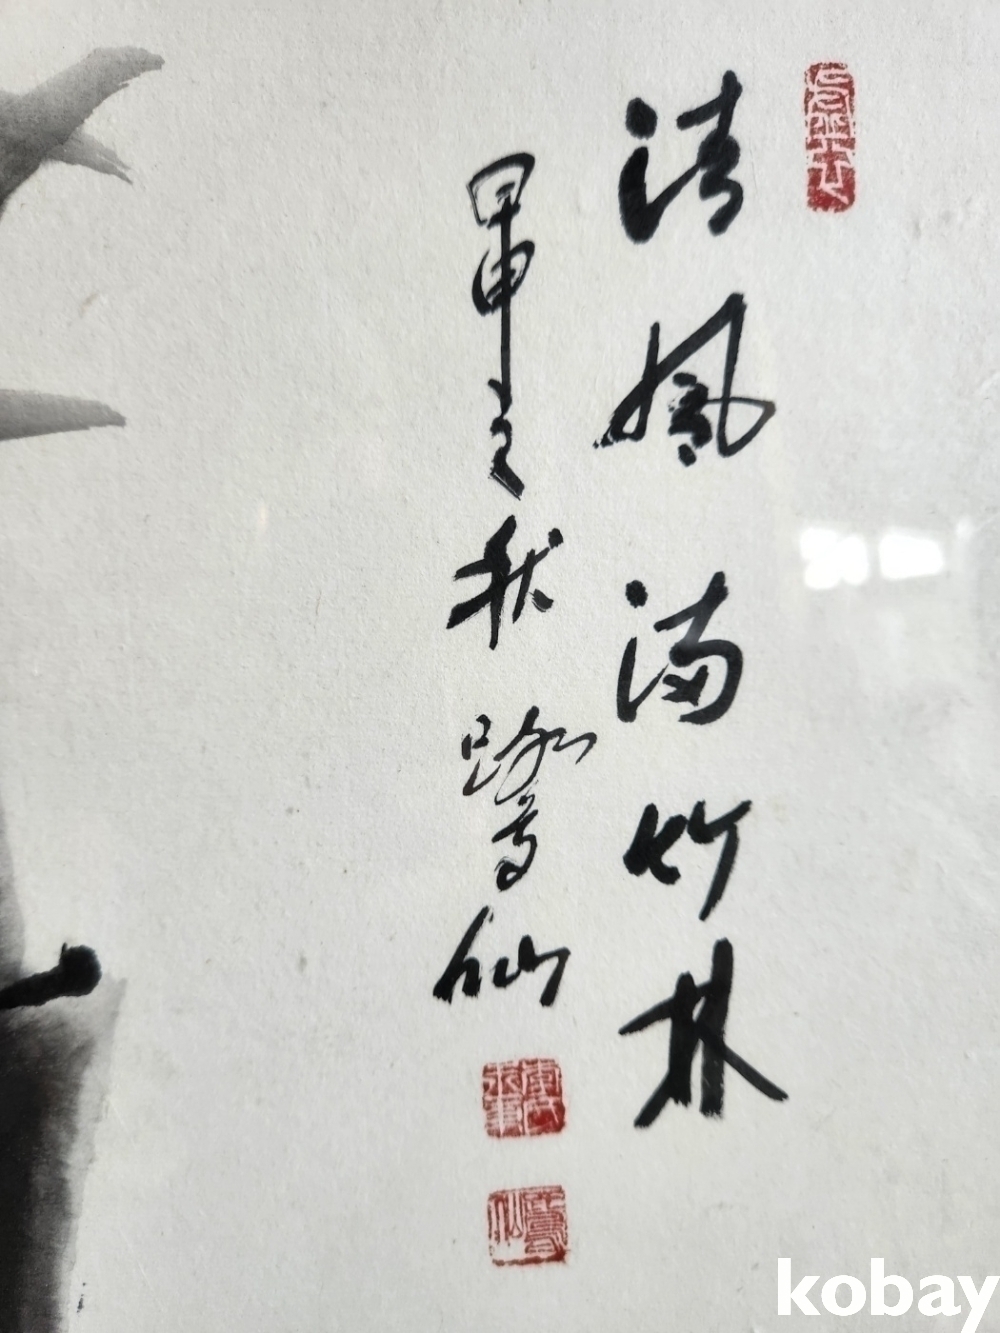 清風滿竹林
甲申之秋 鷺仙
kobay